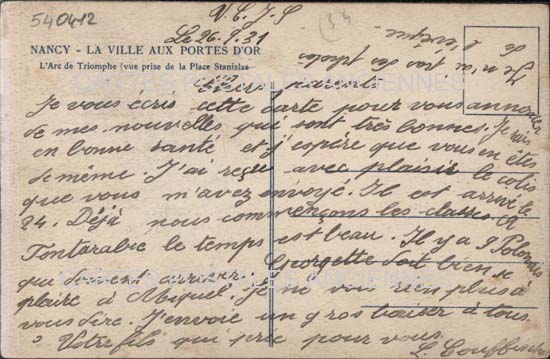 540412
V. C. J. S
54
Le 26.9.31
NANCY - LA VILLE AUX PORTES D'OR
L'Arc de Triomphe (vue prise de la Place Stanislas
Je n'ai pas des photos
de
Chers parents
Je vous écris cette carte pour vous annoncer
de mes nouvelles qui sont très bonnes. Je suis
en bonne santé et j'espère que vous en êtes
de même. J'ai reçue avec plaisir le colis
que vous m'avez envoyé. Il est arrivé le
24. Déjà nous commençons les classes. A
Fontarabie le temps est beau. Il y a 9 Polonais
qui doivent arriver. Georgette doit bien se
plaire à Miquel. Je ne vois rien plus à
vous dire. J'envoie un gros baiser à tous
Votre fils qui prie pour vous.